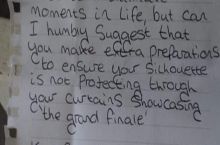 moments in Life, but can
I humbly Suggest that
you make extra Preparations
(to ensure your Silhouette
is not Protecting through
your curtains Showcasing
'the grand finale'